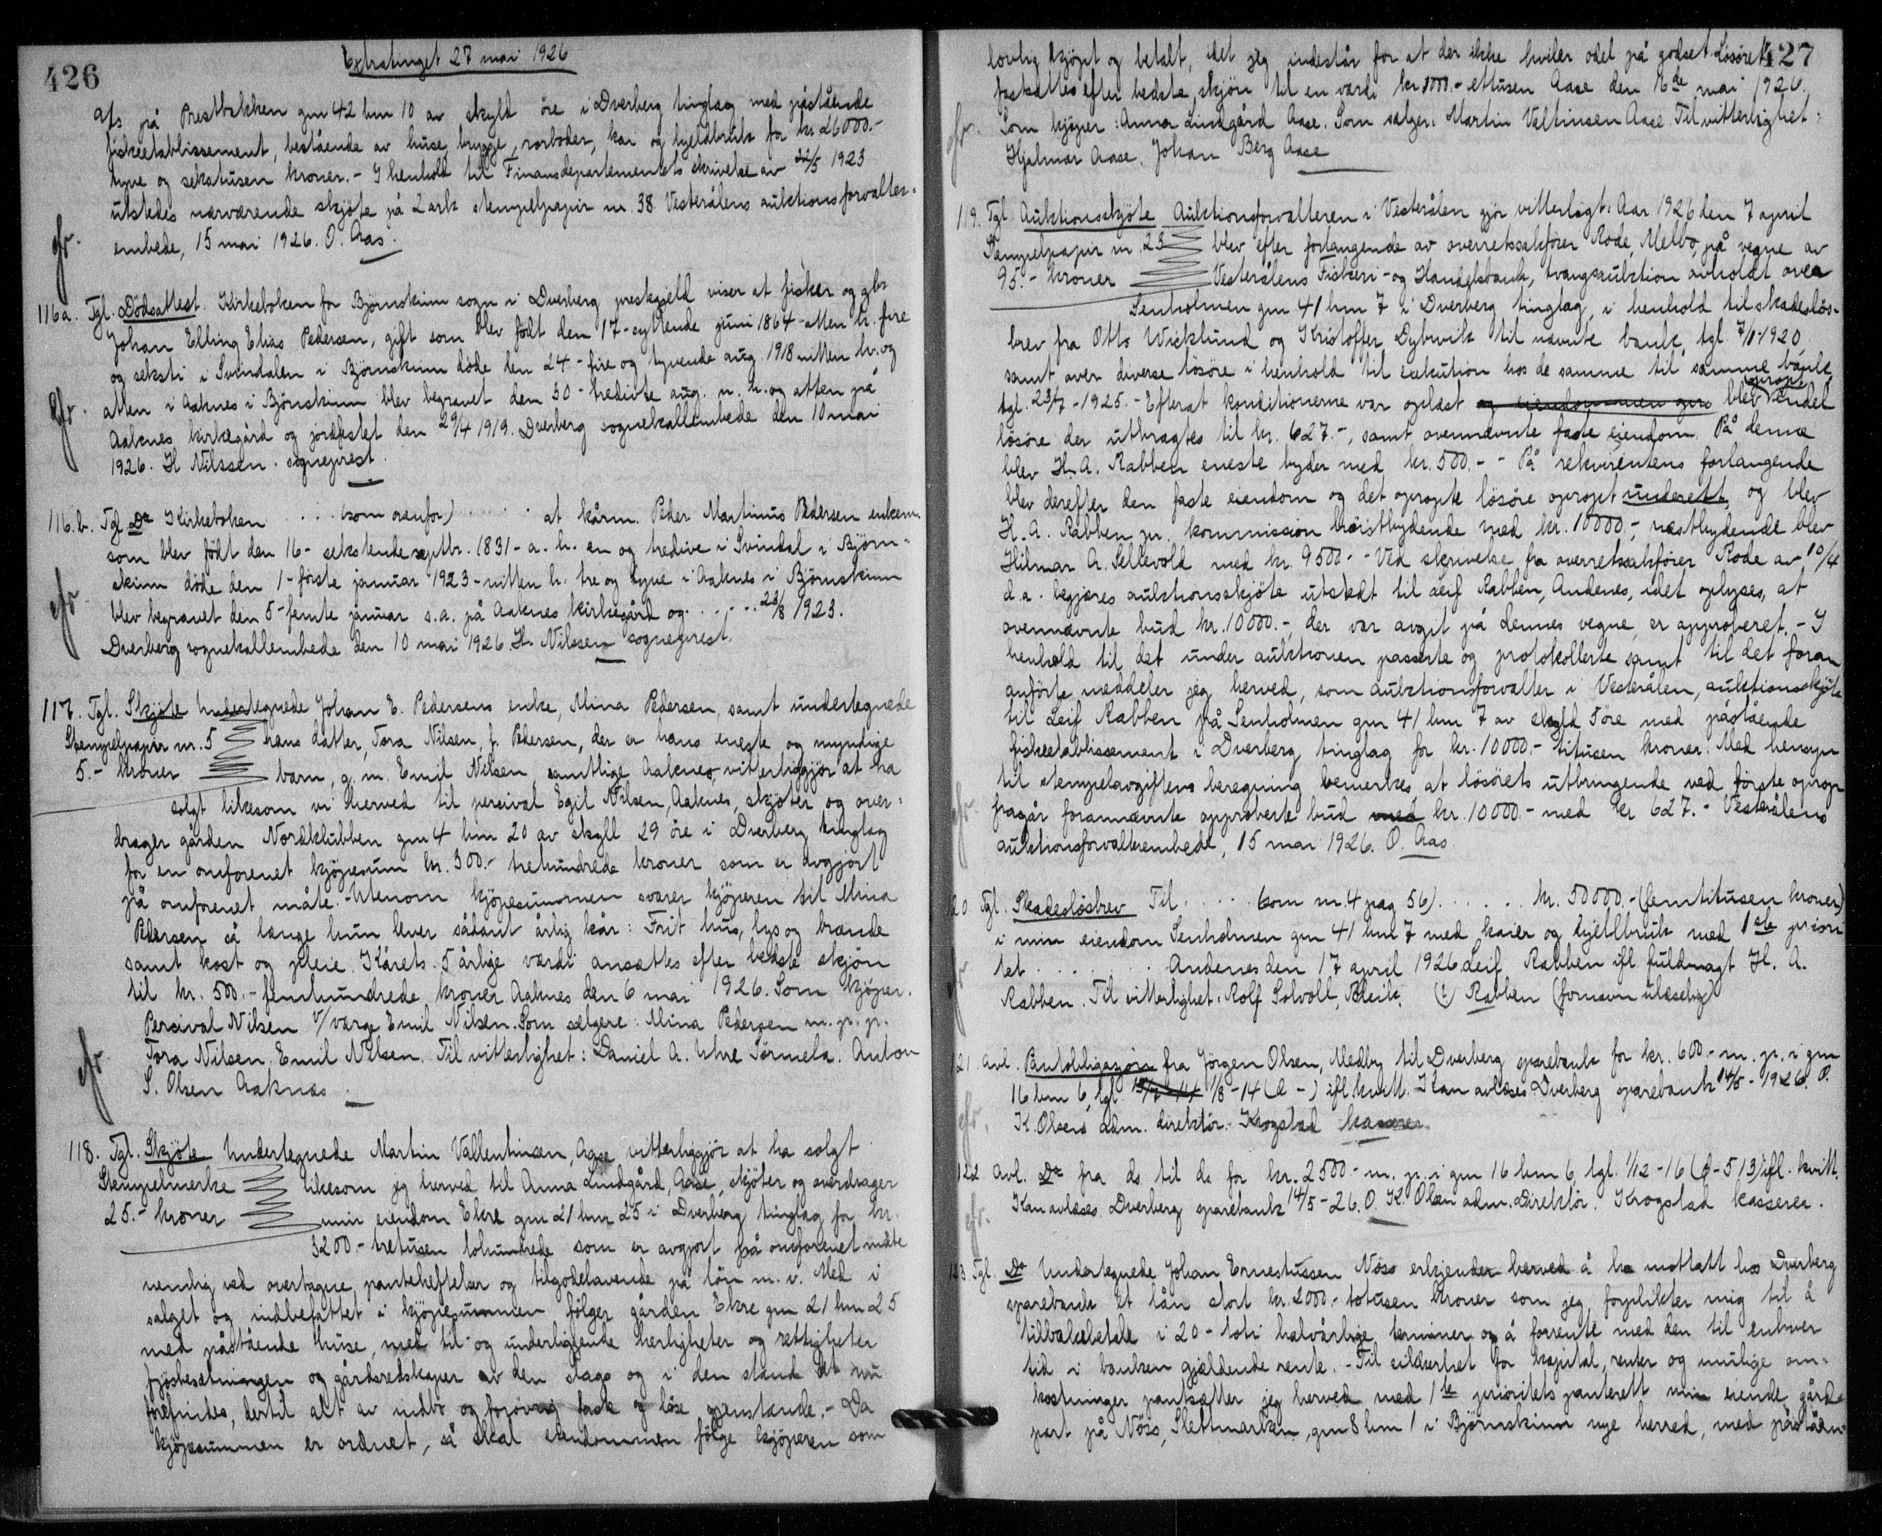 426
Extratinget 27 mai 1926
A/s på Prestbakken gnr 42 bnr 10 av skyld øre i Dverberg tinglag med påstående
fiskeetablissement, bestående av huse, brygge, rorboder, kai og hjeldbruk for kr 26000.-
tyve og sekstusen kroner. - I henhold til Finansdepartementets skrivelse av 22/5 1923
utstedes nærværende skjöte på 2 ark stempelpapir nr. 38 Vesterålens auktionsforvalter-
embede, 15 mai 1926. O. Aas.
116a. Tgl. Dödsattest. Kirkeboken for Björnskinn sogn i Dverberg prestegjeld viser at fisker og gbr
Johan Elling Elias Pedersen, gift som blev födt den 17-syttende juni 1864-atten h. fire
og seksti i Svindalen i Björnskinn döde den 24-fire og tyvende aug. 1918 nitten h. og
atten i Aaknes i Björnskinn blev begravet den 30-tredivte aug. n. h. og atten på
Aaknes kirkegård og jordfestet den 29/4 1919. Dverberg sognekallembede den 10 mai
1926. H Nilssen. sogneprest.
116.b. Tgl. Do Kirkeboken . . . (som ovenfor) . . . . . at kårm. Peder Martinus Pedersen enkem.
som blev födt den 16-sekstende septbr. 1831-a. h. en og tredive i Svindal i Björn-
skinn döde den 1-förste januar 1923-nitten h. tre og tyve i Aaknes i Björnskinn
blev begravet den 5-femte januar s.a. på Aaknes kirkegård og . . . . . 23/8 1923.
Dverberg sognekallembede den 10 mai 1926. H. Nilssen sogneprest.
117. Tgl. Skjöte Undertegnede Johan E. Pedersens enke, Mina Pedersen, samt undertegnede
Stempelpapir nr. 5 hans datter, Tora Nilsen, f. Pedersen, der er hans eneste og myndige
5.- kroner barn, g. m. Emil Nilsen, samtlige Aaknes vitterliggjör at ha
solgt likesom vi herved til percival Egil Nilsen, Aaknes, skjöter og over-
drager gården Nordklubben gnr 4 bnr 20 av skyll 29 öre i Dverberg tinglag
for en omforenet kjöpesum kr. 300.- trehundrede kroner som er avgjort
på omforenet måte. - Utenom kjöpesummen svarer kjöperen til Mina
Pedersen så længe hun lever sådant årlig kår: Frit hus, lys og brænde
samt kost og pleie. Kårets 5 årlige værdi ansættes efter bedste skjön
til kr. 500.- femhundrede kroner Aaknes den 6 mai 1926. Som kjöper.
Percival Nilsen v/værge Emil Nilsen. Som sælgere: Mina Pedersen m. p. p.
Tora Nilsen. Emil Nilsen. Til vitterlighet: Daniel A. Uhre Törmela. Anton
S. Olsen Aaknæs.
118. Tgl. Skjöte Undertegnede Martin Vallentinsen, Aase vitterliggjör at ha solgt
Stempelmerke likesom jeg herved til Anna Lindgård, Aase, skjöter og overdrager
25.- kroner min eiendom Ekre gnr 21 bnr 25 i Dverberg tinglag for kr.
3200 - tretusen tohundrede som er avgjort på omforenet måte
nemlig ved overtagne pantehæftelser og tilgodehavende på lön m. v. Med i
salget og indbefattet i kjöpesummen fölger gården Ekre gnr 21 bnr 25
med påstående huse, med til- og underliggende herligheter og rettigheter
fjösbesætningen og gårdsredskaper av den slags og i den stand det nu
forefindes, dertil alt av indbo og forövrig fast og löse gjenstande. - Da
kjöpesummen er ordnet, så skal eiendommen fölge kjöperen som
427
lovlig kjöpt og betalt, idet jeg indestår for at der ikke hviler odel på godset. Lösöret
taksattes efter bedste skjön til en værdi kr 1000.- ettusen Aase den 16de mai 1926.
Som kjöper: Anna Lindgård Aase. Som sælger: Martin Valtinsen Aase. Til vitterlighet:
Hjalmar Aase. Johan Berg Aase
119. Tgl. Auktionsskjöte Auktionsforvalteren i Vesterålen gjör vitterligt: Aar 1926 den 7 april
Stempelpapir nr. 23 blev efter forlangende av overretssakförer Rode, Melbo, på vegne av
95.- kroner Vesterålens Fiskeri- og Handelsbank, tvangsauktion avholdt over
Senholmen gnr 41 bnr 7 i Dverberg tinglag, i henhold til skadeslös-
brev fra Otto Wicklund og Kristoffer Dybwik til nævnte bank, tgl 7/1-1920,
samt over diverse lösöre i henhold til exekution hos de samme til samme bank,
tgl. 23/7-1925. - Efterat konditionerne var oplæst og eiendommen gnr blev opropt endel
lösöre der utbragtes til kr. 627.-, samt ovennævnte faste eiendom. På denne
blev H. A. Rabben eneste byder med kr. 500.- - På rekvirentens forlangende
blev derefter den faste eiendom og det opropte lösöre opropt underett, og blev
H. A. Rabben pr. kommission höistbydende med kr. 10000.-, næstbydende blev
Hilmar A. Sellevold med kr. 9500.- - Ved skrivelse fra overretssakförer Rode av 10/4
d. a. begjæres auktionsskjöte utstedt til Leif Rabben, Andenes, idet oplyses, at
ovennævnte bud kr. 10000.-, der var avgit på dennes vegne, er approberet. - I
henhold til det under auktionen passerte og protokollerte samt til det foran
anförte meddeler jeg herved, som auktionsforvalter i Vesterålen, auktionsskjöte
til Leif Rabben på Senholmen gnr 41 bnr 7 av skyld 5 öre med påstående
fiskeetablissement i Dverberg tinglag for kr. 10000.- titusen kroner. Med hensyn
til stempelavgiftens beregning bemerkes at lösörets utbringende ved förste oprop
fragår forannævnte approberte bud med kr. 10000.- med kr 627.- Vesterålens
auktionsforvalterembede, 15 mai 1926. O. Aas
20 Tgl. Skadeslösbrev Til . . . . (som nr. 4 pag 56) . . . . . kr. 50000.- (femtitusen kroner)
i min eiendom Senholmen gnr 41 bnr 7 med kaier og hjellbruk med 1ste priori
tet . . . . . Andenes den 17 april 1926 Leif Rabben ifl. fuldmagt H. A.
Rabben. Til vitterlighet: Rolf Solvoll, Bleik. (:) Rabben (fornavn ulæselig)
21 avl. Pantobligasjon fra Jörgen Olsen, Medby til Dverberg sparebank for kr. 600.- m. p. i gnr
16 bnr 6, tgl 1/8-14 (d -) ifl kvitt. Kan avlæses Dverberg sparebank 14/5-1926. O.
K. Olsen adm. direktör. Krogstad kasserer
122 avl. Do fra ds. til ds for kr. 2500.- m. p. i gnr 16 bnr 6, tgl. 1/12-16 (d-513) ifl. kvitt.
Kan avlæses. Dverberg sparebank 14/5-26. O. K. Olsen adm. direktör. Krogstad kasserer.
123. Tgl. Do Undertegnede Johan Ernestussen Nöss erkjender herved å ha mottatt hos Dverberg
sparebank et lån stort kr. 2000.- totusen kroner som jeg forplikter mig til å
tilbakebetale i 20-toti halvårlige terminer og å forrente med den til enhver
tid i banken gjældende rente. - Til sikkerhet for kapital, renter og mulige om-
kostninger pantsætter jeg herved med 1ste prioritets panterett min eiende gård-
part på Nöss, Slettmarken, gnr 8 bnr 1 i Björnskinn nye herred, med påståen-